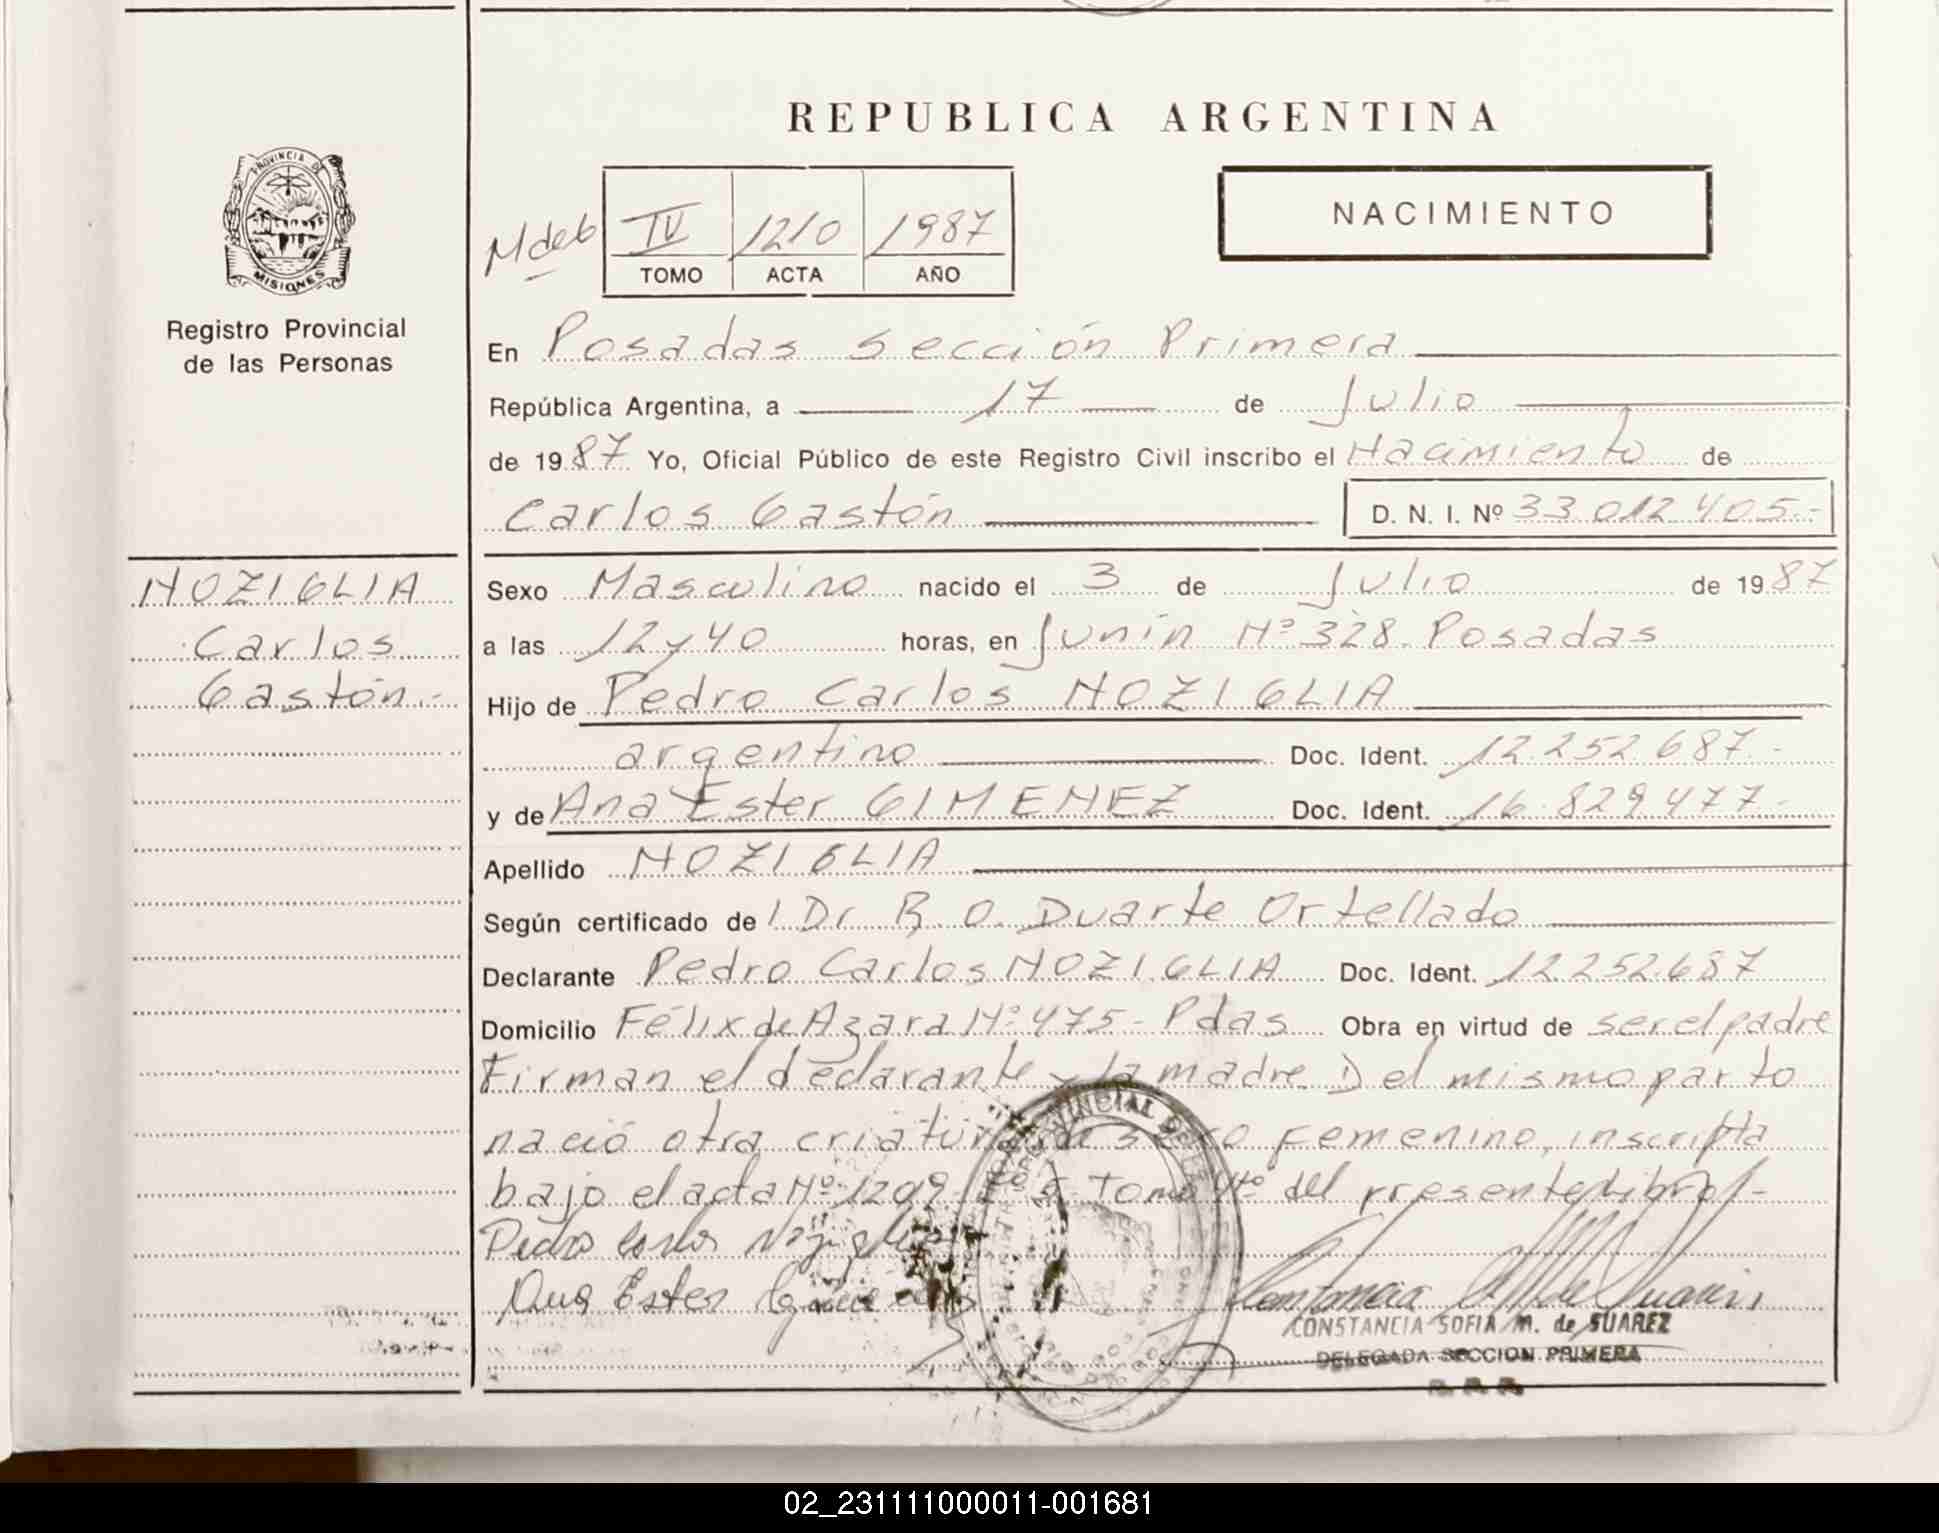 REPUBLICA ARGENTINA
PROVINCIA DE
MISIONES
Registro Provincial
de las Personas
NACIMIENTO
IV 1210 1987
TOMO ACTA AÑO
En Posadas Sección Primera
República Argentina, a 17 de Julio
de 1987 Yo, Oficial Público de este Registro Civil inscribo el Nacimiento de
Carlos Gastón D. N. I. Nº 33.012.405.-
NOZIGLIA
Carlos
Gastón.-
Sexo Masculino nacido el 3 de Julio de 1987
a las 12 y 40 horas, en Junín Nº 328. Posadas
Hijo de Pedro Carlos NOZIGLIA
argentino Doc. Ident. 12.252.687.-
y de Ana Ester GIMENEZ Doc. Ident. 16.829.477.-
Apellido NOZIGLIA
Según certificado de l Dr. R. O. Duarte Ortellado
Declarante Pedro Carlos NOZIGLIA Doc. Ident. 12.252.687
Domicilio Félix de Azara Nº 475 - Pdas Obra en virtud de ser el padre
Firman el declarante y la madre. Del mismo parto
nació otra criatura de sexo Femenino, inscripta
bajo el acta Nº 1209 Tomo 4to del presente Libro.-
Pedro Carlos Noziglia
Ana Ester
CONSTANCIA SOFIA M. de SUAREZ
DELEGADA SECCION PRIMERA
02_231111000011-001681